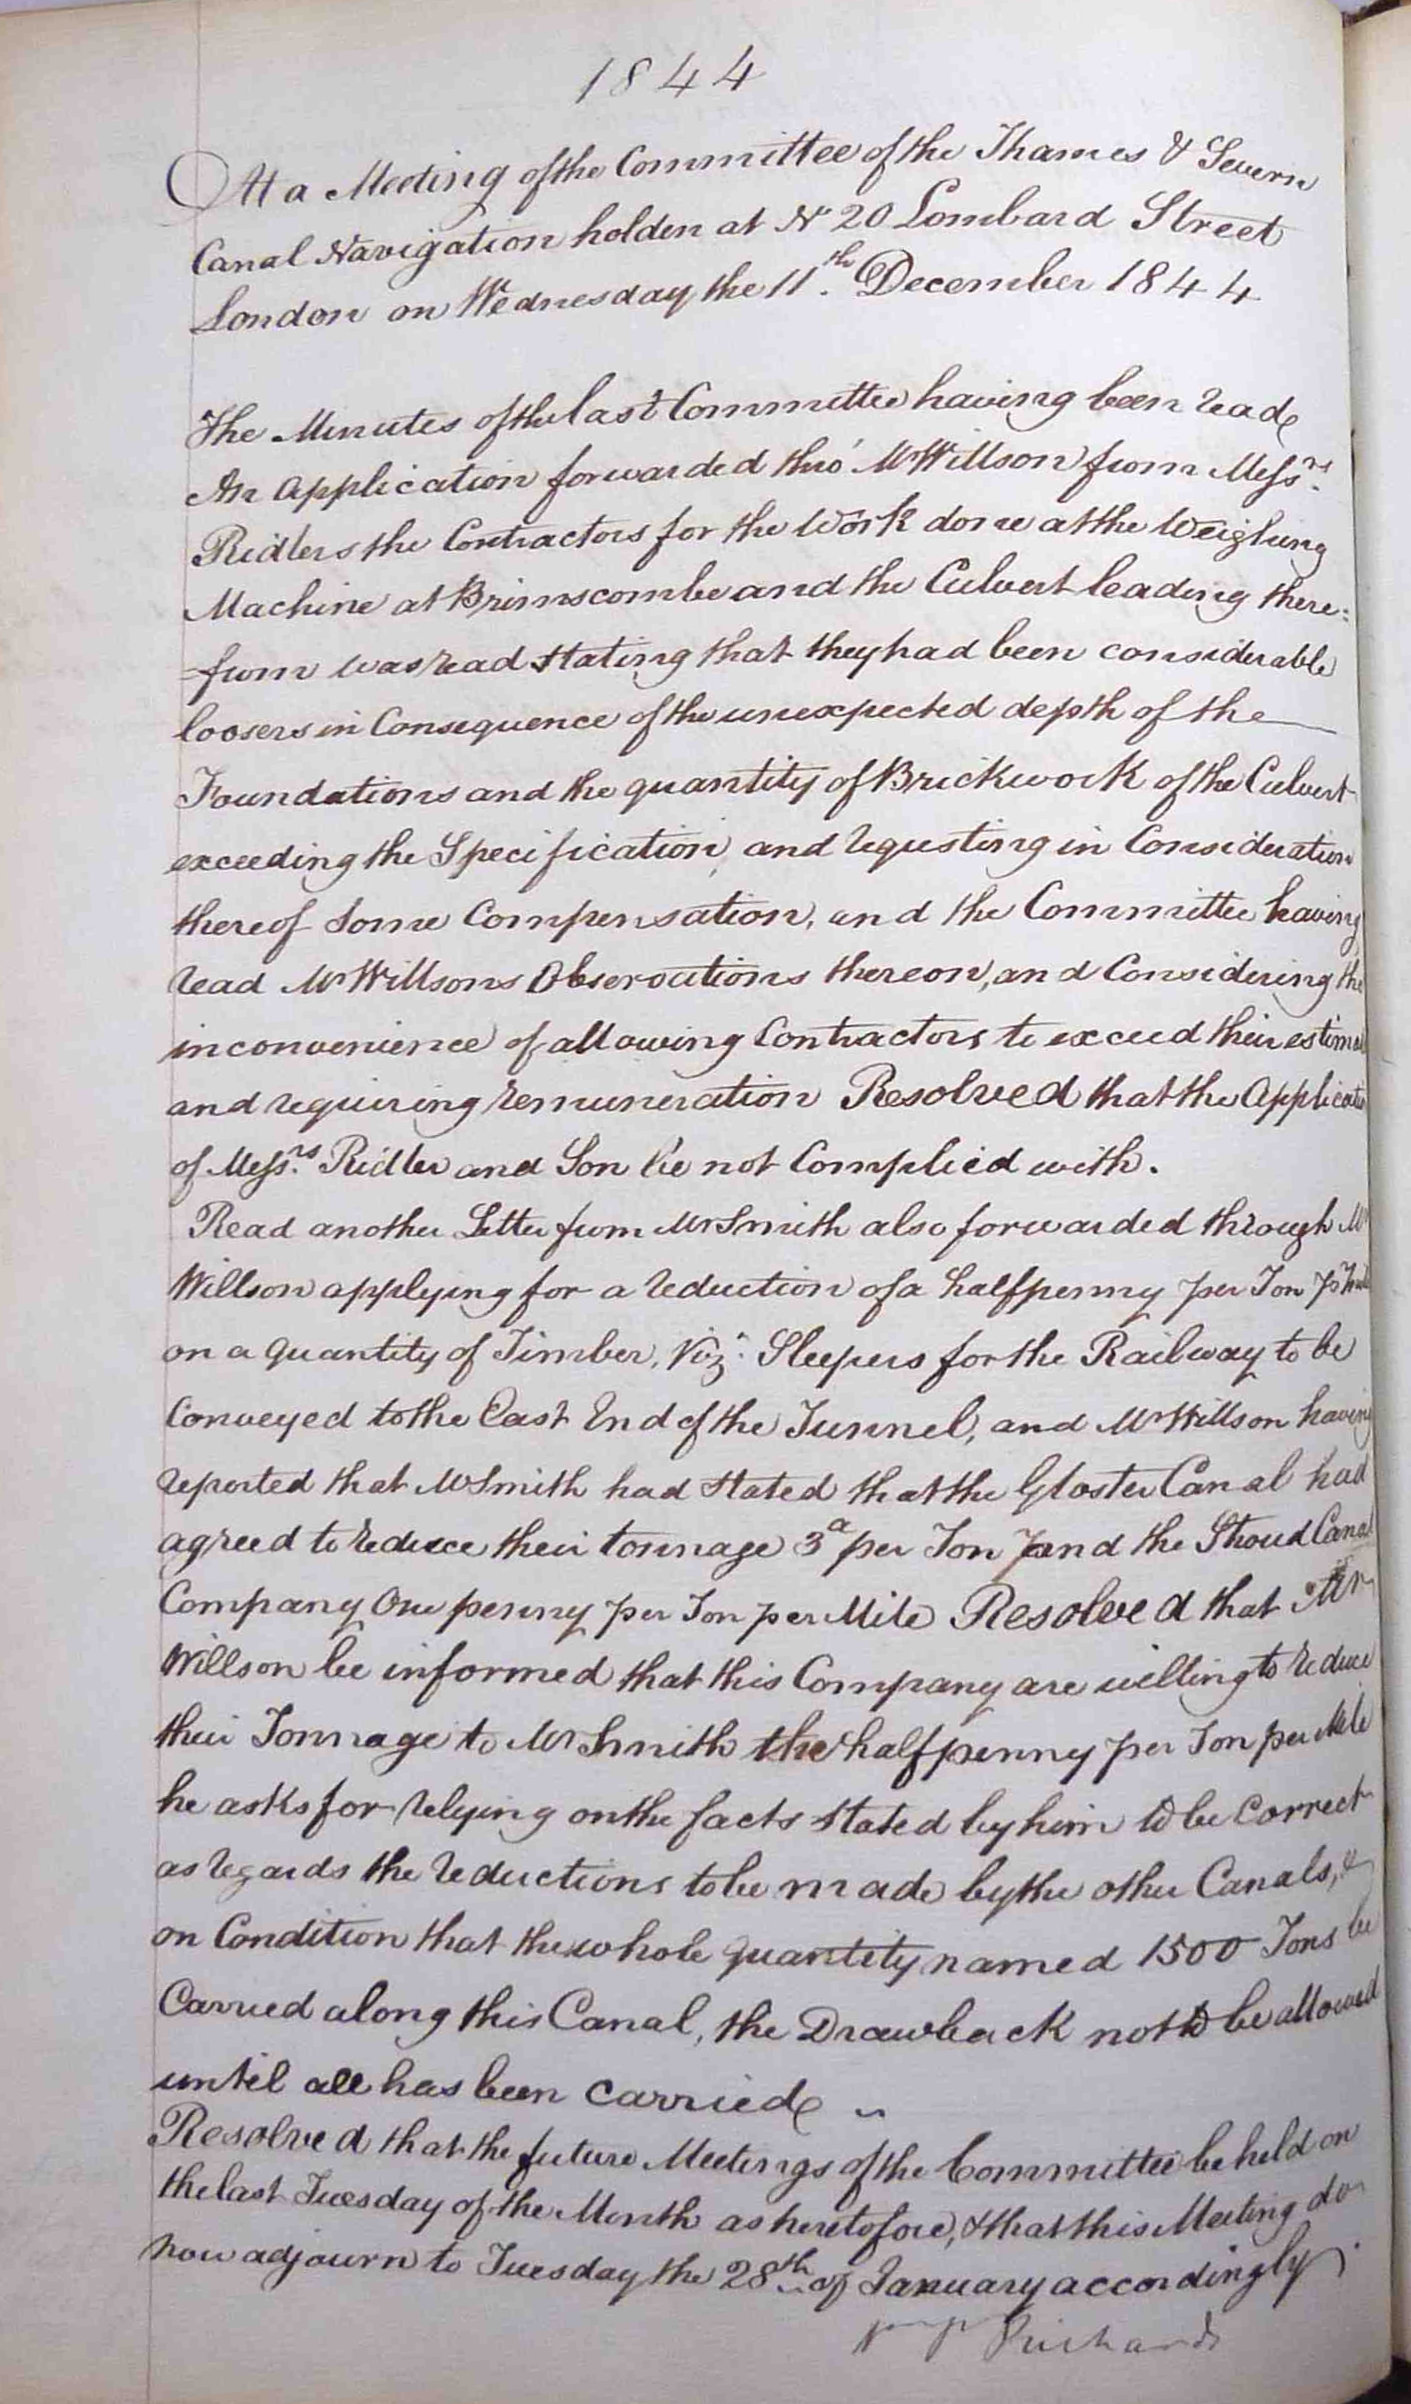 1844
At a Meeting of the Committee of the Thames & Severn
Canal Navigation holden at No 20 Lombard Street
London on Wednesday the 11th. December 1844
The Minutes of the last Committee having been read
An Application forwarded thro' Mr Willson from Messrs.
Ridlers the Contractors for the Work done at the Weighing
Machine at Brimscombe and the Culvert leading there=
=from was read stating that they had been considerable
loosers in Consequence of the unexpected depth of the
Foundations and the quantity of Brickwork of the Culvert
exceeding the Specification, and requesting in Consideration
thereof some Compensation, and the Committee having
read Mr Willsons Observations thereon, and Considering the
inconvenience of allowing Contractors to exceed their estimate
and requiring remuneration Resolved that the Application
of Messrs. Ridler and Son be not Complied with.
Read another Letter from Mr Smith also forwarded through Mr
Willson applying for a reduction of a halfpenny per Ton p Mile
on a quantity of Timber, Viz: Sleepers for the Railway to be
Conveyed to the East End of the Tunnel, and Mr Willson having
reported that Mr Smith had stated that the Gloster Canal had
agreed to reduce their tonnage 3d per Ton and the Stroud Canal
Company One penny per Ton per Mile Resolved that Mr
Willson be informed that this Company are willing to reduce
their Tonnage to Mr Smith the halfpenny per Ton per Mile
he asks for relying on the facts stated by him to be Correct
as regards the reductions to be made by the other Canals, &
on Condition that the whole quantity named 1500 Tons be
Carried along this Canal, the Drawback not to be allowed
until all has been Carried
Resolved that the future Meetings of the Committee be held on
the last Tuesday of the Month as heretofore, & that this Meeting do
now adjourn to Tuesday the 28th of January accordingly.
Richards